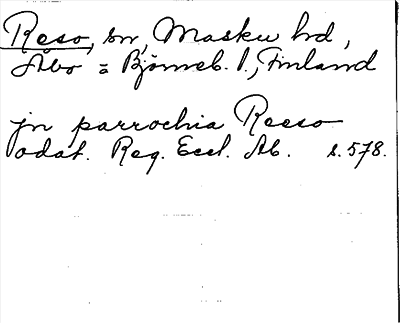 Reso, sn, Masku hd,
Åbo = Björneb. l., Finland
jn parrochia Reeso
odat. Reg. Eccl. Ab. s. 578.